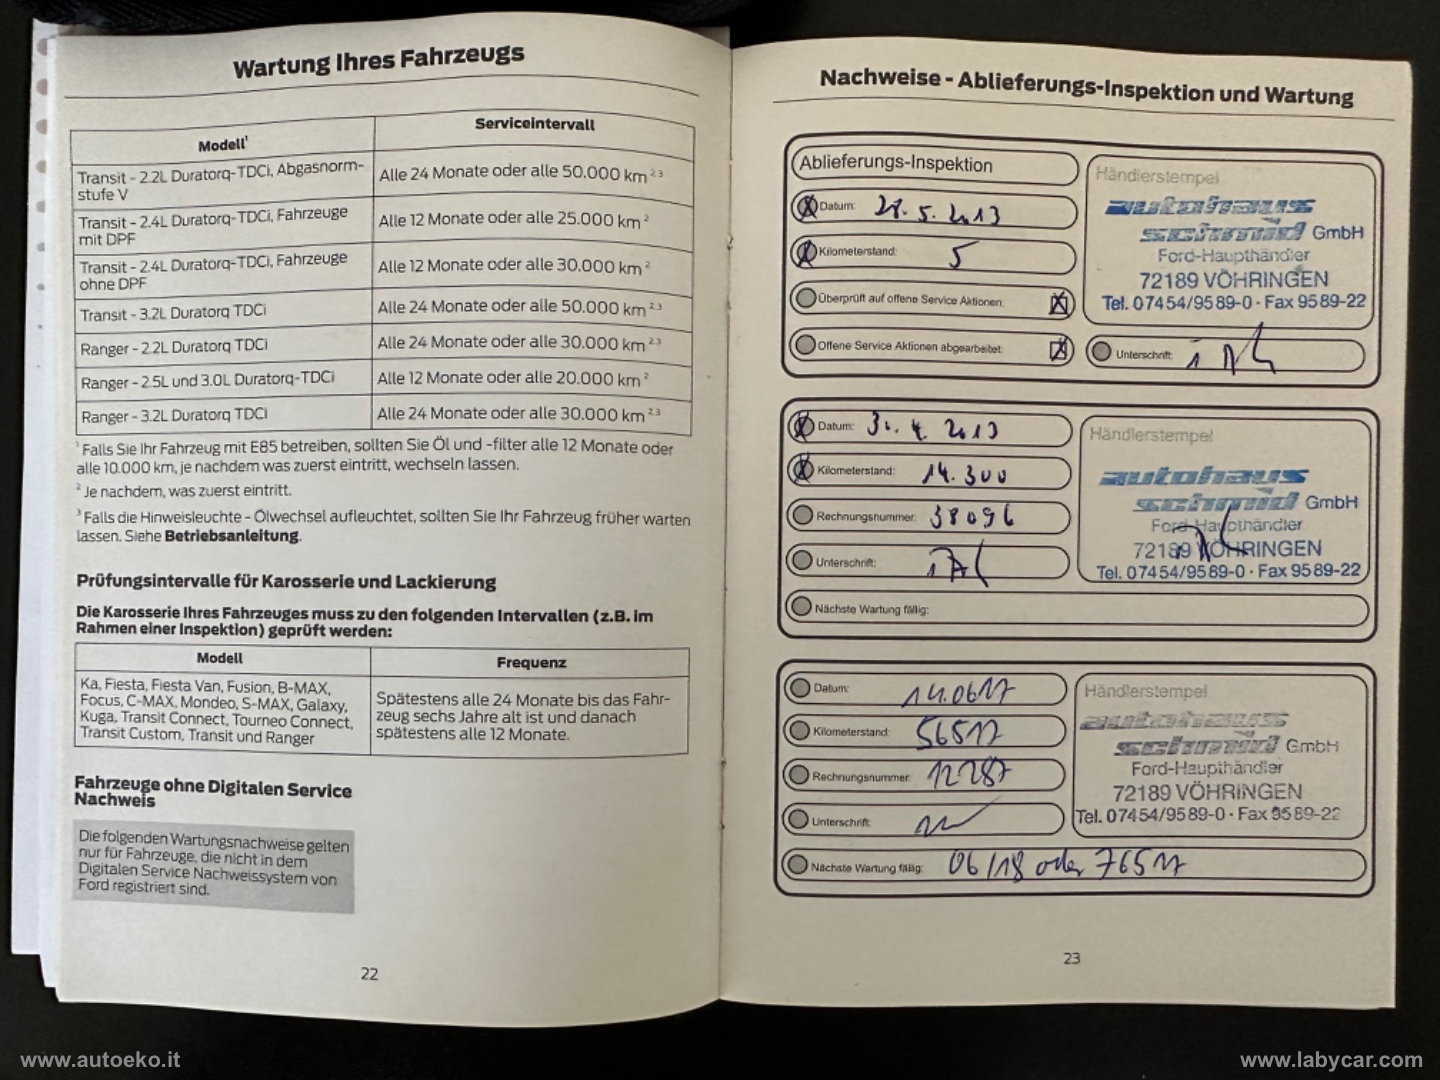 Wartung Ihres Fahrzeugs
Modell¹
Serviceintervall
Transit - 2.2L Duratorq-TDCi, Abgasnorm-
stufe V
Alle 24 Monate oder alle 50.000 km ²·³
Transit - 2.4L Duratorq-TDCi, Fahrzeuge
mit DPF
Alle 12 Monate oder alle 25.000 km ²
Transit - 2.4L Duratorq-TDCi, Fahrzeuge
ohne DPF
Alle 12 Monate oder alle 30.000 km ²
Transit - 3.2L Duratorq TDCi
Alle 24 Monate oder alle 50.000 km ²·³
Ranger - 2.2L Duratorq TDCi
Alle 24 Monate oder alle 30.000 km ²·³
Ranger - 2.5L und 3.0L Duratorq-TDCi
Alle 12 Monate oder alle 20.000 km ²
Ranger - 3.2L Duratorq TDCi
Alle 24 Monate oder alle 30.000 km ²·³
¹ Falls Sie Ihr Fahrzeug mit E85 betreiben, sollten Sie Öl und -filter alle 12 Monate oder
alle 10.000 km, je nachdem was zuerst eintritt, wechseln lassen.
² Je nachdem, was zuerst eintritt.
³ Falls die Hinweisleuchte - Ölwechsel aufleuchtet, sollten Sie Ihr Fahrzeug früher warten
lassen. Siehe Betriebsanleitung.
Prüfungsintervalle für Karosserie und Lackierung
Die Karosserie Ihres Fahrzeuges muss zu den folgenden Intervallen (z.B. im
Rahmen einer Inspektion) geprüft werden:
Modell
Frequenz
Ka, Fiesta, Fiesta Van, Fusion, B-MAX,
Focus, C-MAX, Mondeo, S-MAX, Galaxy,
Kuga, Transit Connect, Tourneo Connect,
Transit Custom, Transit und Ranger
Spätestens alle 24 Monate bis das Fahr-
zeug sechs Jahre alt ist und danach
spätestens alle 12 Monate.
Fahrzeuge ohne Digitalen Service
Nachweis
Die folgenden Wartungsnachweise gelten
nur für Fahrzeuge, die nicht in dem
Digitalen Service Nachweissystem von
Ford registriert sind.
22
Nachweise - Ablieferungs-Inspektion und Wartung
Ablieferungs-Inspektion
Datum: 28.5.2013
Kilometerstand: 5
Überprüft auf offene Service Aktionen:
Offene Service Aktionen abgearbeitet:
Händlerstempel
autohaus
schmid GmbH
Ford-Haupthändler
72189 VÖHRINGEN
Tel. 07454/9589-0 · Fax 9589-22
Unterschrift:
Datum: 30.4.2013
Kilometerstand: 14.300
Rechnungsnummer: 38096
Unterschrift:
Nächste Wartung fällig:
Händlerstempel
autohaus
schmid GmbH
Ford-Haupthändler
72189 VÖHRINGEN
Tel. 07454/9589-0 · Fax 9589-22
Datum: 14.0617
Kilometerstand: 56517
Rechnungsnummer: 12287
Unterschrift:
Nächste Wartung fällig: 06/18 oder 76517
Händlerstempel
autohaus
schmid GmbH
Ford-Haupthändler
72189 VÖHRINGEN
Tel. 07454/9589-0 · Fax 9589-22
23
www.autoeko.it
www.labycar.com